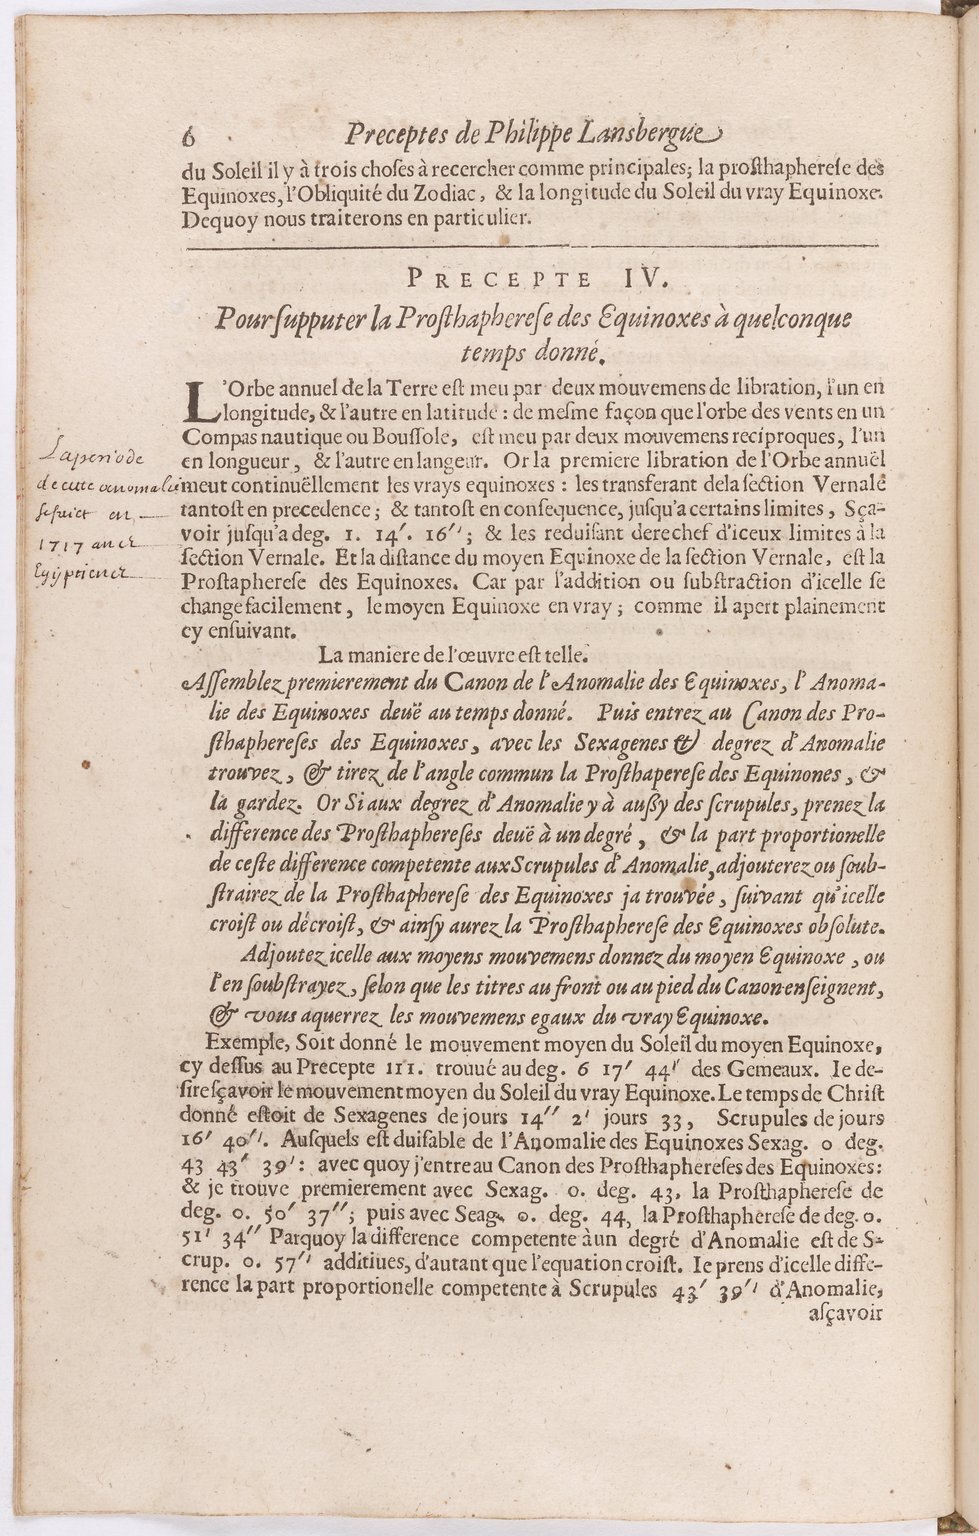 6 Preceptes de Philippe Lansbergue
du Soleil il y à trois choſes à recercher comme principales; la proſthaphereſe des
Equinoxes, l'Obliquité du Zodiac, & la longitude du Soleil du vray Equinoxe.
Dequoy nous traiterons en particulier.
PRECEPTE IV.
Pour ſupputer la Proſthaphereſe des Equinoxes à quelconque
temps donné.
L'Orbe annuel de la Terre eſt meu par deux mouvemens de libration, l'un en
longitude, & l'autre en latitude: de meſme façon que l'orbe des vents en un
Compas nautique ou Bouſſole, eſt meu par deux mouvemens reciproques, l'un
en longueur, & l'autre en langeur. Or la premiere libration de l'Orbe annuël
meut continuëllement les vrays equinoxes: les transferant dela ſection Vernale
tantoſt en precedence; & tantoſt en conſequence, juſqu'a certains limites, Sça-
voir juſqu'a deg. 1. 14′. 16′′; & les reduiſant derechef d'iceux limites à la
ſection Vernale. Et la diſtance du moyen Equinoxe de la ſection Vernale, eſt la
Proſtaphereſe des Equinoxes. Car par l'addition ou ſubſtraction d'icelle ſe
change facilement, le moyen Equinoxe en vray; comme il apert plainement
cy enſuivant.
La periode
de cette anomalie
ſe fait en
1717 ans
Egÿptiens
La maniere de l'œuvre eſt telle.
Aſſemblez premierement du Canon de l'Anomalie des Equinoxes, l'Anoma-
lie des Equinoxes deuë au temps donné. Puis entrez au Canon des Pro-
ſthaphereſes des Equinoxes, avec les Sexagenes & degrez d'Anomalie
trouvez, & tirez de l'angle commun la Proſthapereſe des Equinones, &
la gardez. Or Si aux degrez d'Anomalie y à auſſy des ſcrupules, prenez la
difference des Proſthaphereſes deuë à un degré, & la part proportionelle
de ceſte difference competente aux Scrupules d'Anomalie, adjouterez ou ſoub-
ſtrairez de la Proſthaphereſe des Equinoxes ja trouvée, ſuivant qu'icelle
croiſt ou décroiſt, & ainſy aurez la Proſthaphereſe des Equinoxes obſolute.
Adjoutez icelle aux moyens mouvemens donnez du moyen Equinoxe, ou
l'en ſoubſtrayez, ſelon que les titres au front ou au pied du Canon enſeignent,
& vous aquerrez les mouvemens egaux du vray Equinoxe.
Exemple, Soit donné le mouvement moyen du Soleil du moyen Equinoxe,
cy deſſus au Precepte III. trouué au deg. 6 17′ 44′′ des Gemeaux. Ie de-
ſire ſçavoir le mouvement moyen du Soleil du vray Equinoxe. Le temps de Chriſt
donné eſtoit de Sexagenes de jours 14′′ 2′ jours 33, Scrupules de jours
16′ 40′′. Auſquels eſt duiſable de l'Anomalie des Equinoxes Sexag. 0 deg.
43 43′ 39′: avec quoy j'entre au Canon des Proſthaphereſes des Equinoxes:
& je trouve premierement avec Sexag. 0. deg. 43, la Proſthaphereſe de
deg. 0. 50′ 37′′; puis avec Seag. 0. deg. 44, la Proſthaphereſe de deg. 0.
51′ 34′′ Parquoy la difference competente à un degré d'Anomalie eſt de S-
crup. 0. 57′′ additiues, d'autant que l'equation croiſt. Ie prens d'icelle diffe-
rence la part proportionelle competente à Scrupules 43′ 39′′ d'Anomalie,
aſçavoir